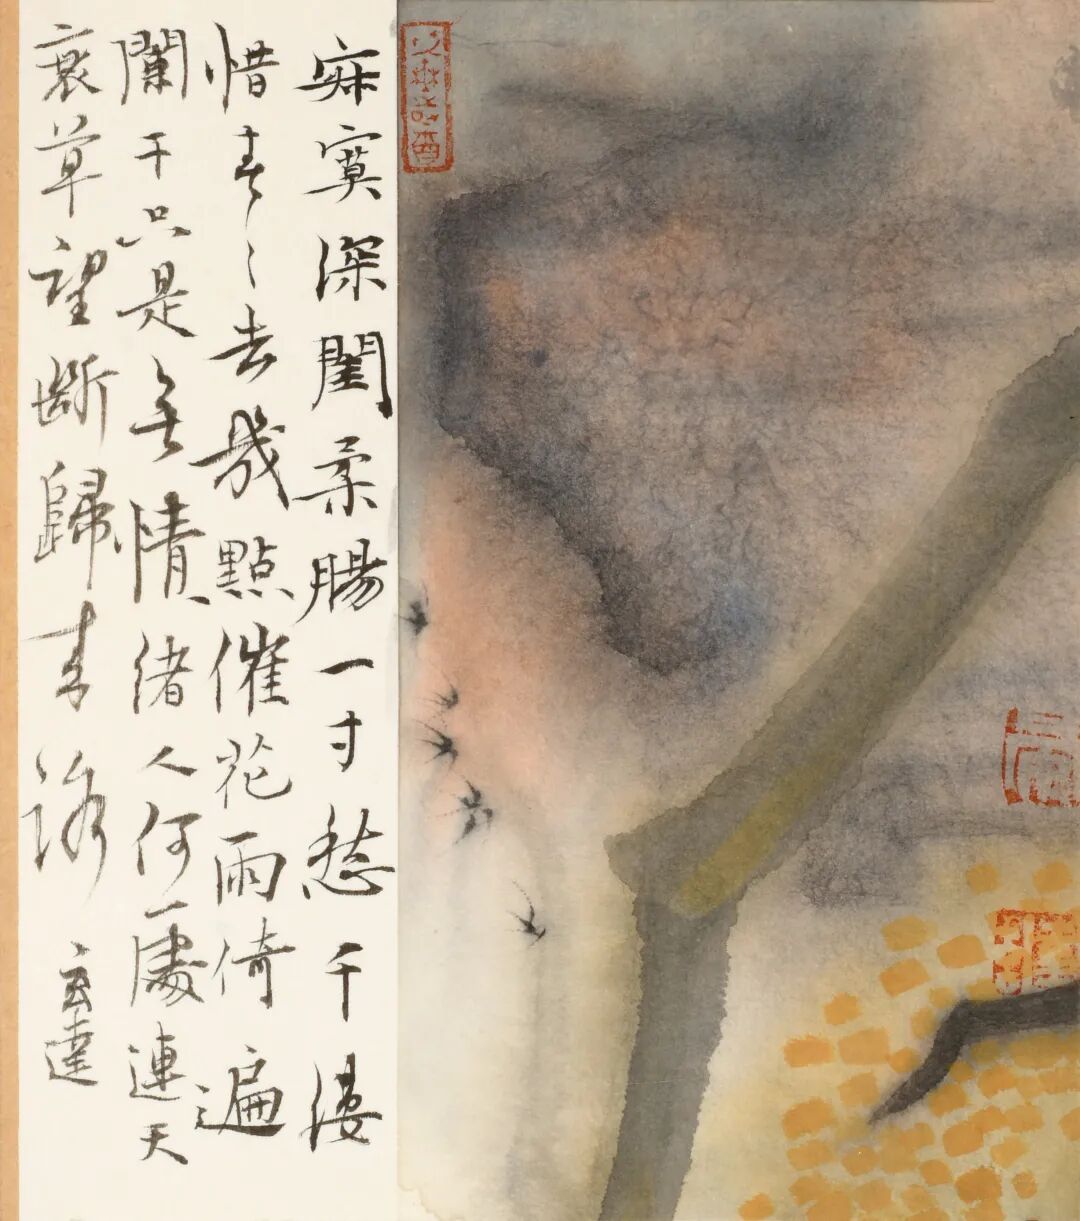 寂寞深閨柔腸一寸愁千縷
惜春々去幾點催花雨倚遍
闌干只是無情緒人何處連天
衰草望斷歸來路 玄達